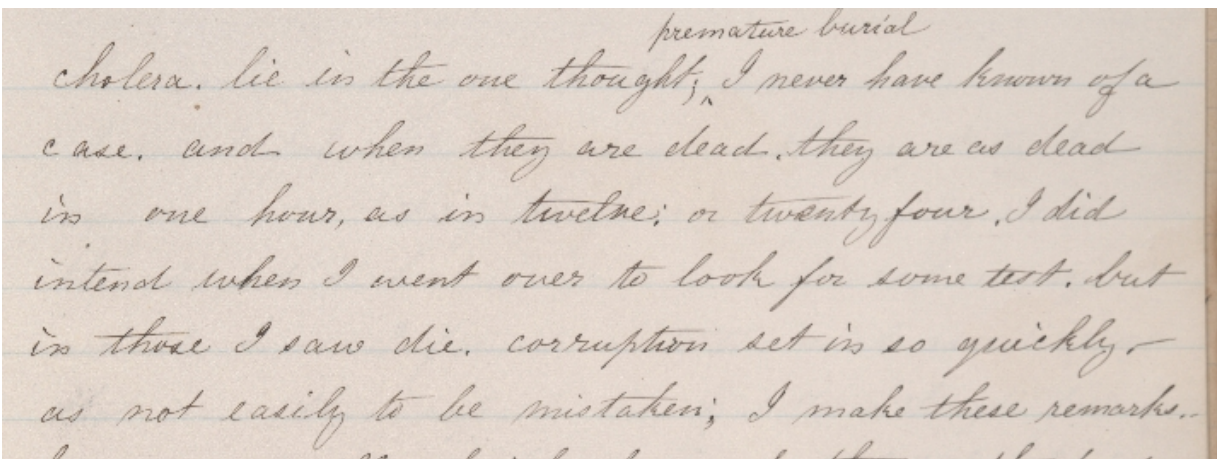 premature burial
cholera. lie in the one thought; ‸ I never have known of a
case. and when they are dead. they are as dead
in one hour, as in twelve; or twenty four. I did
intend when I went over to look for some test. but
in those I saw die. corruption set in so quickly. –
as not easily to be mistaken; I make these remarks. –